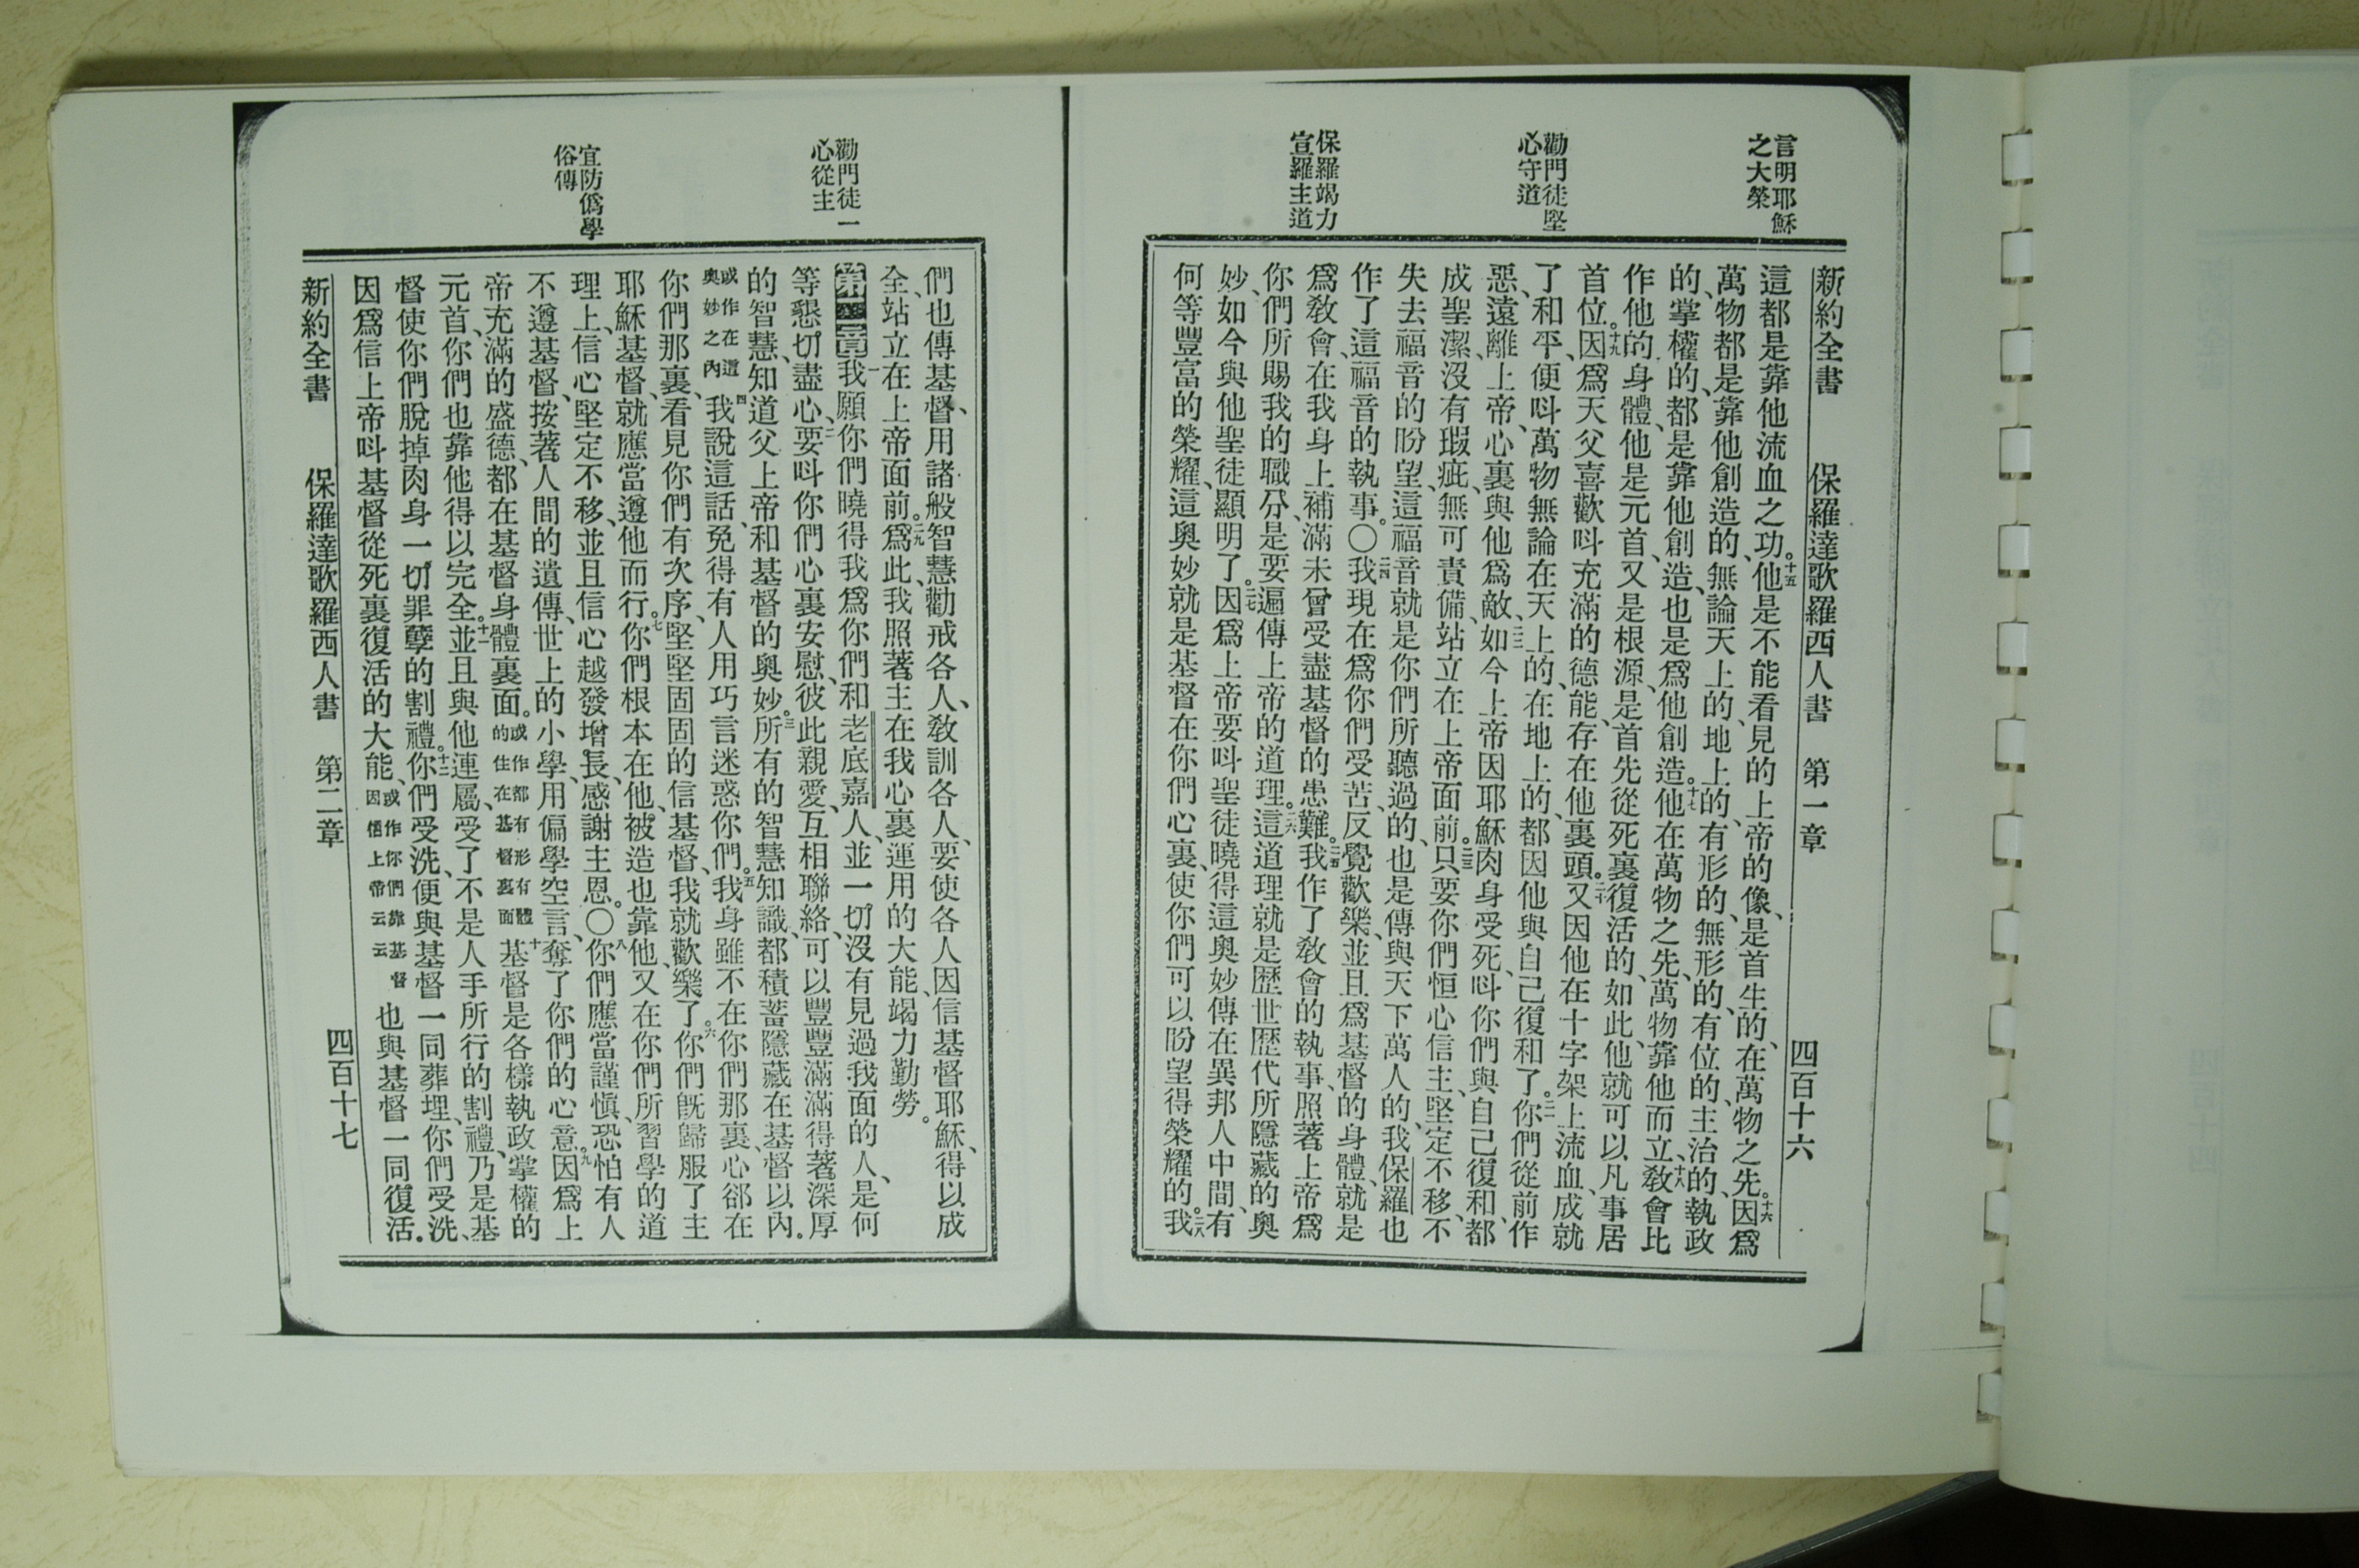 言明耶穌
之大榮
勸門徒堅
心守道
保羅竭力
宣羅主道
新約全書 保羅達歌羅西人書 第一章 四百十六
這都是靠他流血之功。十五他是不能看見的上帝的像、是首生的、在萬物之先。十六因爲
萬物都是靠他創造的、無論天上的、地上的、有形的、無形的、有位的、主治的、執政
的、掌權的、都是靠他創造、也是爲他創造。十七他在萬物之先、萬物靠他而立、十八敎會比
作他的身體、他是元首、又是根源、是首先從死裏復活的、如此、他就可以凡事居
首位。十九因爲天父喜歡呌充滿的德能、存在他裏頭。二十又因他在十字架上流血、成就
了和平、便呌萬物無論在天上的、在地上的、都因他與自己復和了。二一你們從前作
惡、遠離上帝、心裏與他爲敵、二二如今上帝因耶穌肉身受死、呌你們與自己復和、都
成聖潔、沒有瑕疵、無可責備、站立在上帝面前。二三只要你們恒心信主、堅定不移、不
失去福音的盼望、這福音就是你們所聽過的、也是傳與天下萬人的、我保羅也
作了這福音的執事。〇二四我現在爲你們受苦、反覺歡樂、並且爲基督的身體、就是
爲敎會、在我身上補滿未曾受盡基督的患難。二五我作了敎會的執事、照著上帝爲
你們所賜我的職分、是要遍傳上帝的道理。二六這道理就是歷世歷代所隱藏的奧
妙、如今與他聖徒顯明了。二七因爲上帝要呌聖徒曉得這奧妙傳在異邦人中間、有
何等豐富的榮耀、這奧妙就是基督在你們心裏、使你們可以盼望得榮耀的。二八我
勸門徒一
心從主
宜防僞學
俗傳
們也傳基督、用諸般智慧勸戒各人、敎訓各人、要使各人因信基督耶穌、得以成
全、站立在上帝面前。二九爲此、我照著主在我心裏運用的大能、竭力勤勞。
第二章一我願你們曉得我爲你們和老底嘉人、並一切沒有見過我面的人、是何
等懇切盡心、二要呌你們心裏安慰、彼此親愛、互相聯絡、可以豐豐滿滿得著深厚
的智慧、知道父上帝和基督的奧妙。三所有的智慧知識、都積蓄隱藏在基督以內。
或作在這奧妙之內四我說這話、免得有人用巧言迷惑你們。五我身雖不在你們那裏、心卻在
你們那裏、看見你們有次序、堅堅固固的信基督、我就歡樂了。六你們旣歸服了主
耶穌基督、就應當遵他而行。七你們根本在他、被造也靠他、又在你們所習學的道
理上、信心堅定不移、並且信心越發增長、感謝主恩。〇八你們應當謹愼、恐怕有人
不遵基督、按著人間的遺傳、世上的小學、用偏學空言、奪了你們的心意。九因爲上
帝充滿的盛德、都在基督身體裏面。或作都有形有體的住在基督裏面十基督是各樣執政掌權的
元首、你們也靠他得以完全。十一並且與他連屬、受了不是人手所行的割禮、乃是基
督使你們脫掉肉身一切罪孽的割禮。十二你們受洗、便與基督一同葬埋、你們受洗、
因爲信上帝呌基督從死裏復活的大能、或作你們靠基督因信上帝云云也與基督一同復活。
新約全書 保羅達歌羅西人書 第二章 四百十七